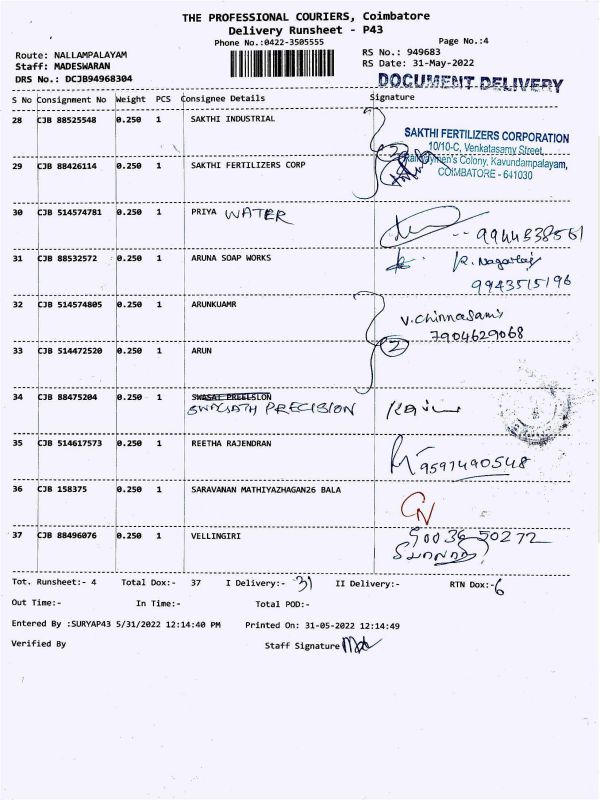 THE PROFESSIONAL COURIERS, Coimbatore
Delivery Runsheet - P43
Phone No.:0422-3505555
Page No.:4
Route: NALLAMPALAYAM
RS No.: 949683
Staff: MADESWARAN
RS Date: 31-May-2022
DRS No.: DCJB94968304
DOCUMENT DELIVERY
S No Consignment No Weight PCS Consignee Details Signature
28 CJB 88525548 0.250 1 SAKTHI INDUSTRIAL
SAKTHI FERTILIZERS CORPORATION
10/10-C, Venkatasamy Street,
Colony, Kavundampalayam,
COIMBATORE - 641030
29 CJB 88426114 0.250 1 SAKTHI FERTILIZERS CORP
30 CJB 514574781 0.250 1 PRIYA WATER
9944538561
31 CJB 88532572 0.250 1 ARUNA SOAP WORKS
R. Nagaraj
9943515196
32 CJB 514574805 0.250 1 ARUNKUAMR
V. Chinnasami
7904629068
33 CJB 514472520 0.250 1 ARUN
2
34 CJB 88475204 0.250 1 SWASAT PREELSLON
SWAGATH PRECISION
35 CJB 514617573 0.250 1 REETHA RAJENDRAN
9597490548
36 CJB 158375 0.250 1 SARAVANAN MATHIYAZHAGAN26 BALA
37 CJB 88496076 0.250 1 VELLINGIRI
9003650272
Tot. Runsheet:- 4 Total Dox:- 37 I Delivery:- 31 II Delivery:- RTN Dox:- 6
Out Time:- In Time:- Total POD:-
Entered By :SURYAP43 5/31/2022 12:14:40 PM Printed On: 31-05-2022 12:14:49
Verified By Staff Signature